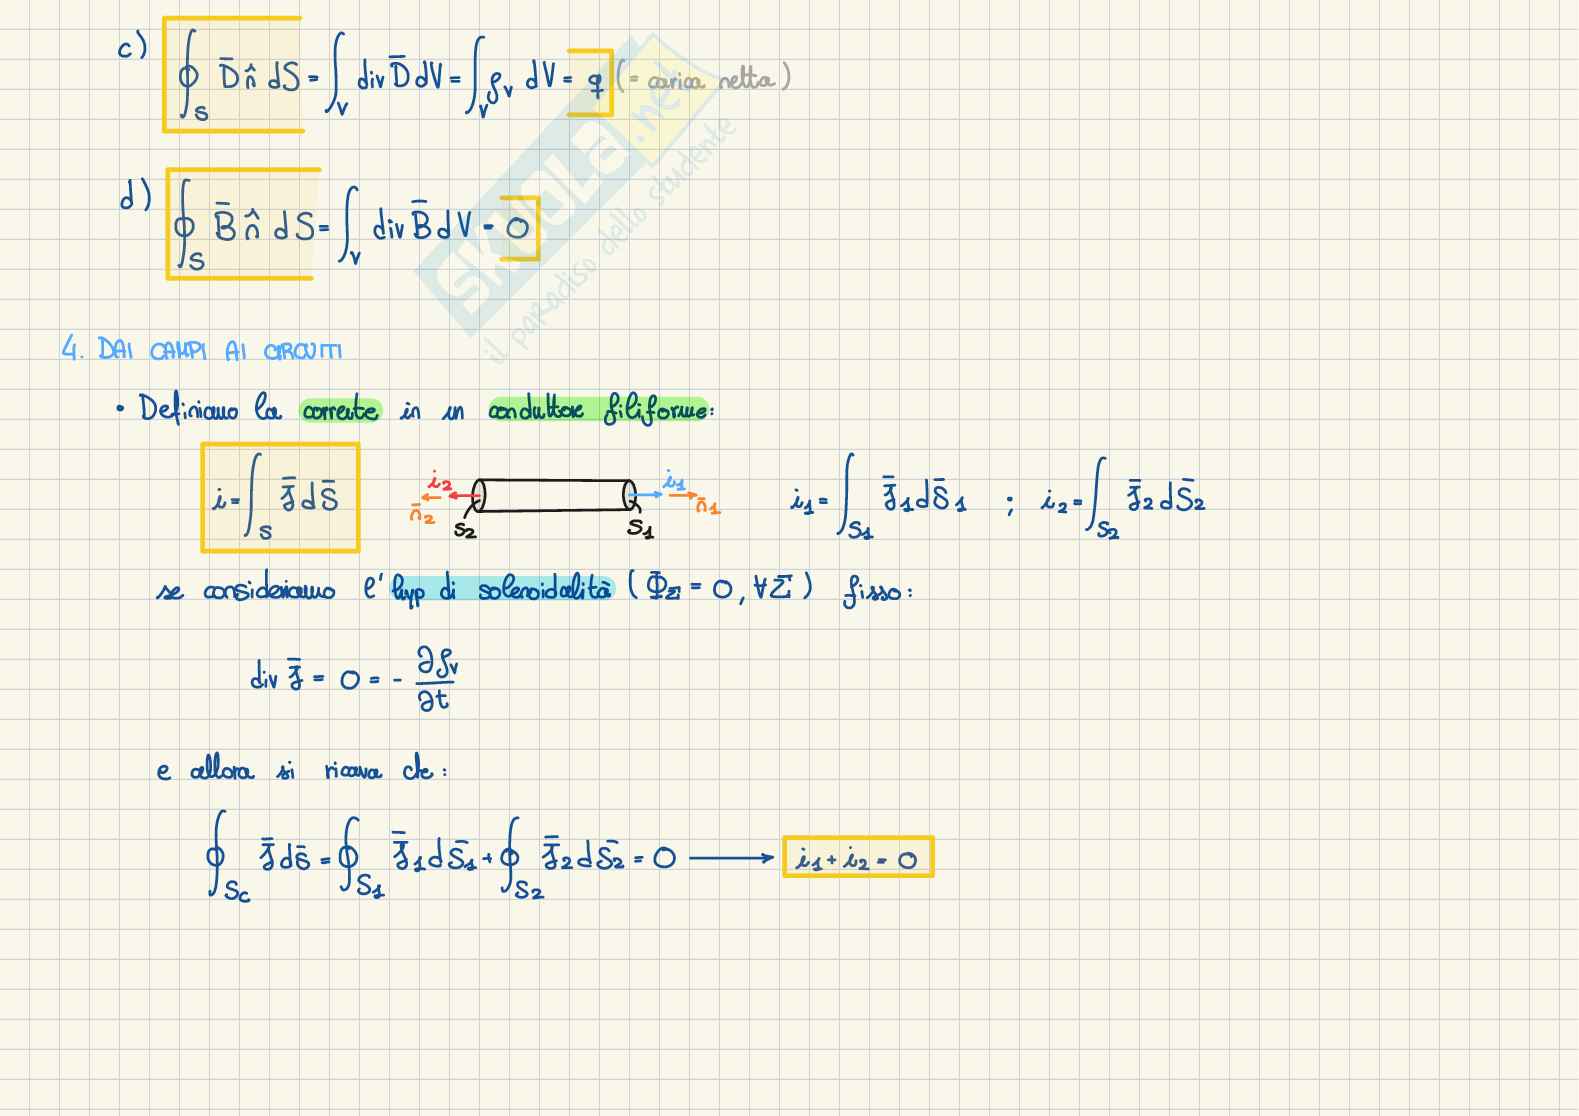 c) ∮_S D̄ n̂ dS = ∫_V div D̄ dV = ∫_V ρ_v dV = q (= carica netta)
d) ∮_S B̄ n̂ dS = ∫_V div B̄ dV = 0
SKUOLA.net
il paradiso dello studente
4. DAI CAMPI AI CIRCUITI
• Definiamo la corrente in un conduttore filiforme:
i = ∫_S J̄ dS̄
i₂ n̄₂ S₂ S₁ i₁ n̄₁
i₁ = ∫_S₁ J̄₁ dS̄₁ ; i₂ = ∫_S₂ J̄₂ dS̄₂
se consideriamo l'hyp di solenoidalità (Φ_Σ = 0, ∀Σ) fisso:
div J̄ = 0 = - ∂ρ_v/∂t
e allora si ricava che:
∮_Sc J̄ ds̄ = ∮_S₁ J̄₁ dS̄₁ + ∮_S₂ J̄₂ dS̄₂ = 0 → i₁ + i₂ = 0